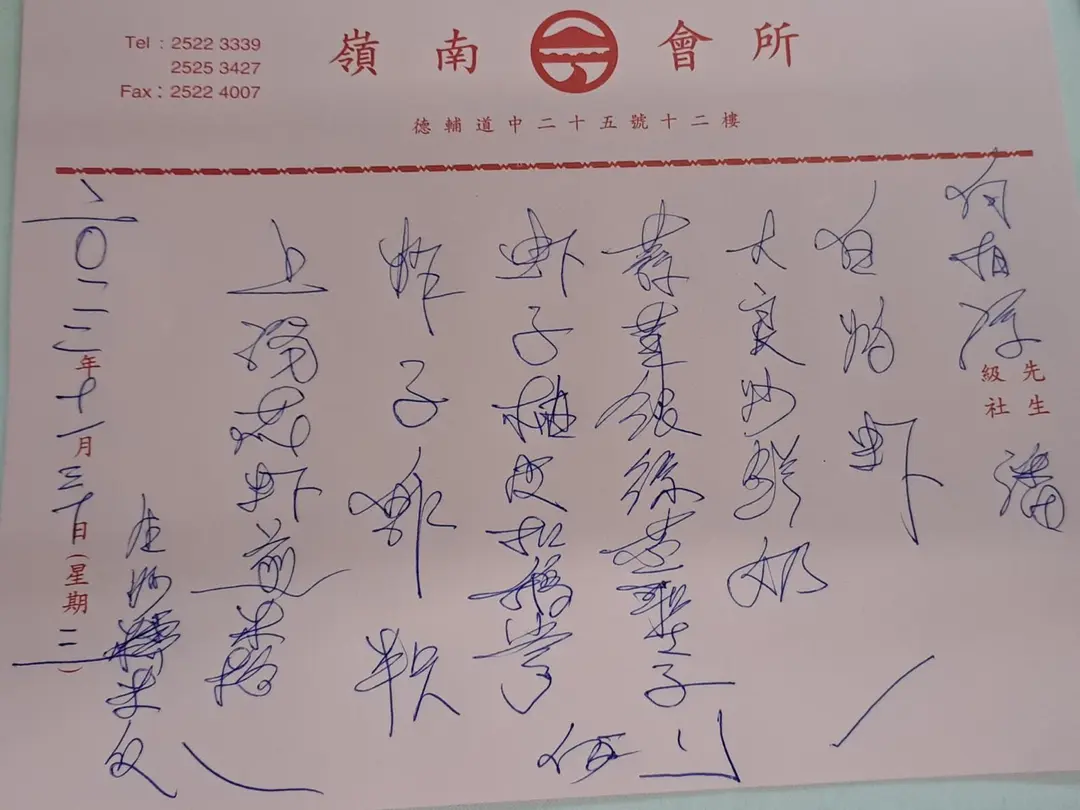 Tel : 2522 3339
2525 3427
Fax : 2522 4007
嶺南會所
德輔道中二十五號十二樓
先生
級社
潘
白灼虾
大良炒鮮奶
蒜茸銀絲蒸聖子
虾子柚皮扣鵝掌
炸子雞 半只
上湯龍虾煎米
生炒糯米
年十一月三十日(星期二)